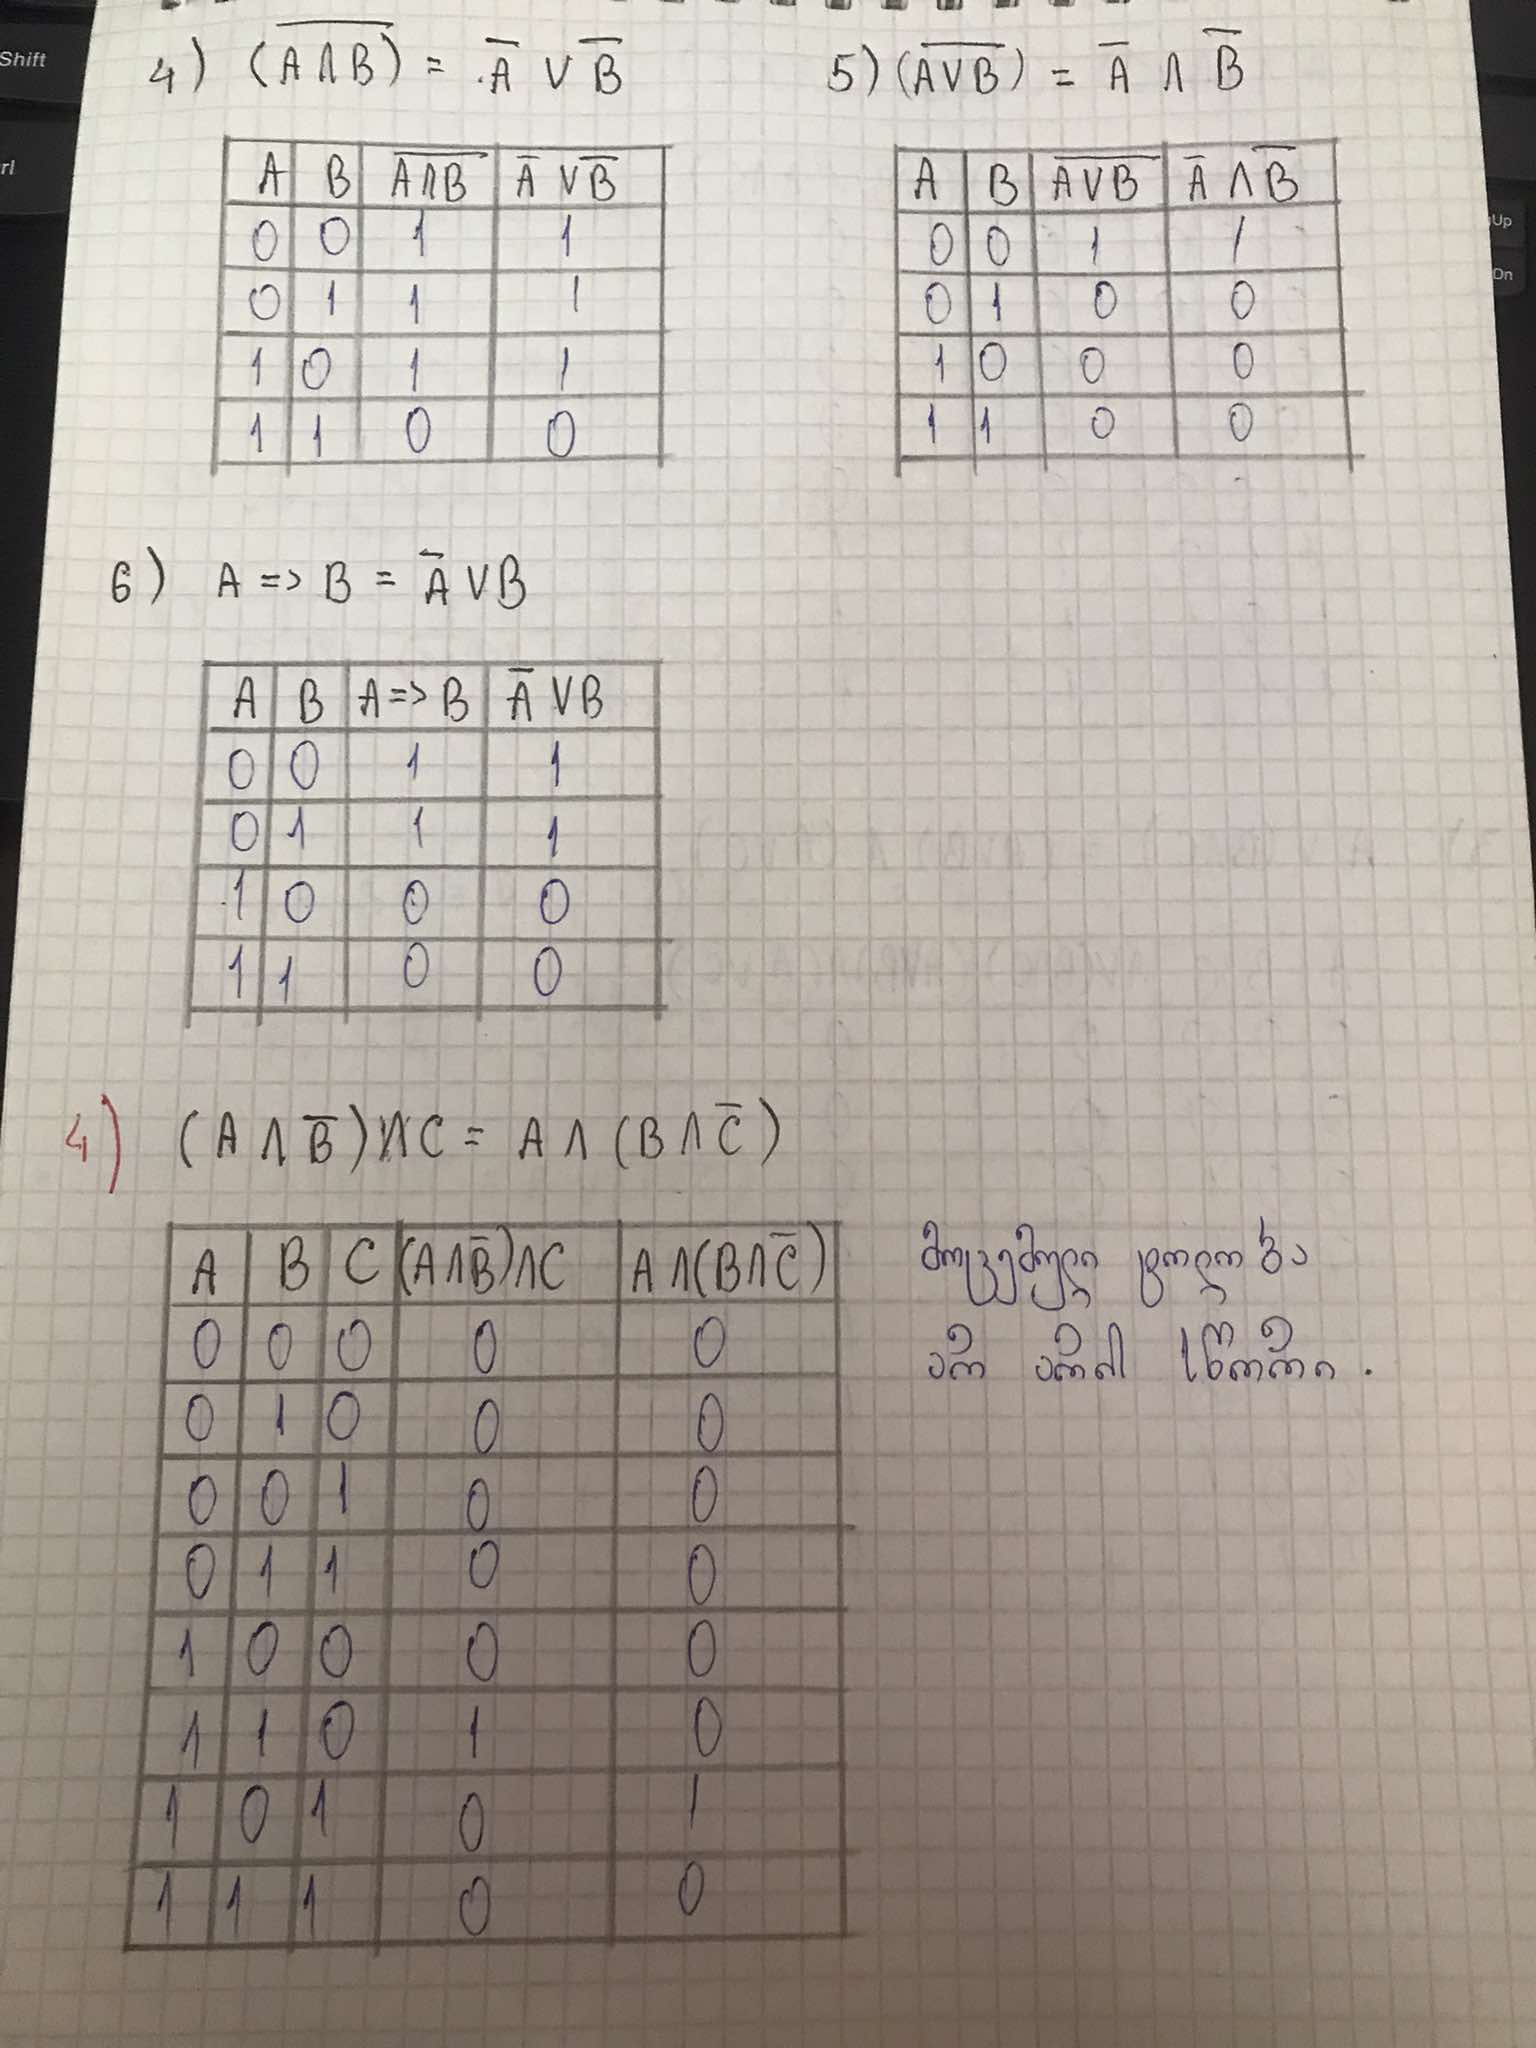 Shift
4) (A̅∧̅B̅) = A̅ ∨ B̅
5) (A̅∨̅B̅) = A̅ ∧ B̅
A B A̅∧̅B̅ A̅ ∨ B̅
0 0 1 1
0 1 1 1
1 0 1 1
1 1 0 0
A B A̅∨̅B̅ A̅ ∧ B̅
0 0 1 1
0 1 0 0
1 0 0 0
1 1 0 0
Up
Dn
6) A => B = A̅ ∨ B
A B A => B A̅ ∨ B
0 0 1 1
0 1 1 1
1 0 0 0
1 1 0 0
4) (A ∧ B̅) ∧ C = A ∧ (B ∧ C̅)
A B C (A∧B̅)∧C A∧(B∧C̅)
0 0 0 0 0
0 1 0 0 0
0 0 1 0 0
0 1 1 0 0
1 0 0 0 0
1 1 0 1 0
1 0 1 0 1
1 1 1 0 0
მოცემული ტოლობა
არ არის სწორი.